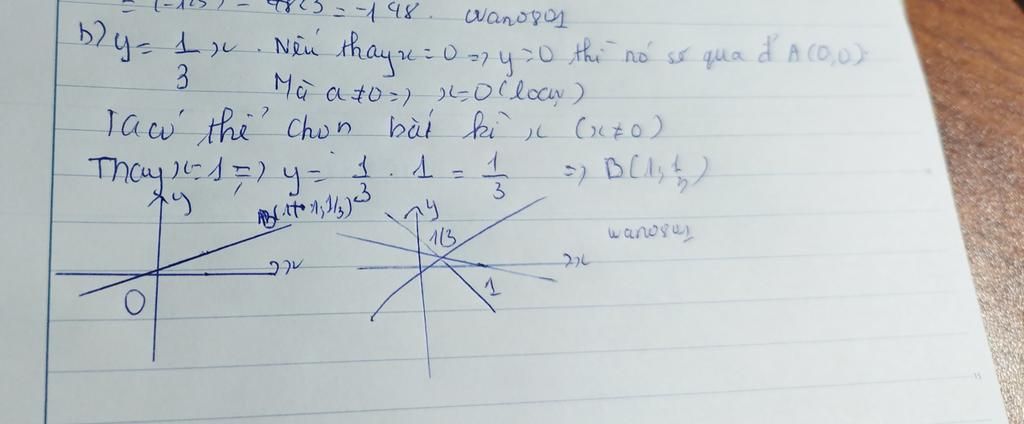 = (-1)3) - 4813 = -148. wano801
b) y = 1/3 x. Nếu thay x = 0 => y = 0 thì nó sẽ qua đ A(0,0)
Mà a ≠ 0 => x = 0 (loại)
Ta có thể chọn bất kì x (x ≠ 0)
Thay x = 1 => y = 1/3 . 1 = 1/3 => B(1, 1/3)
y
1/3)
x
O
y
1/3
x
1
wano801